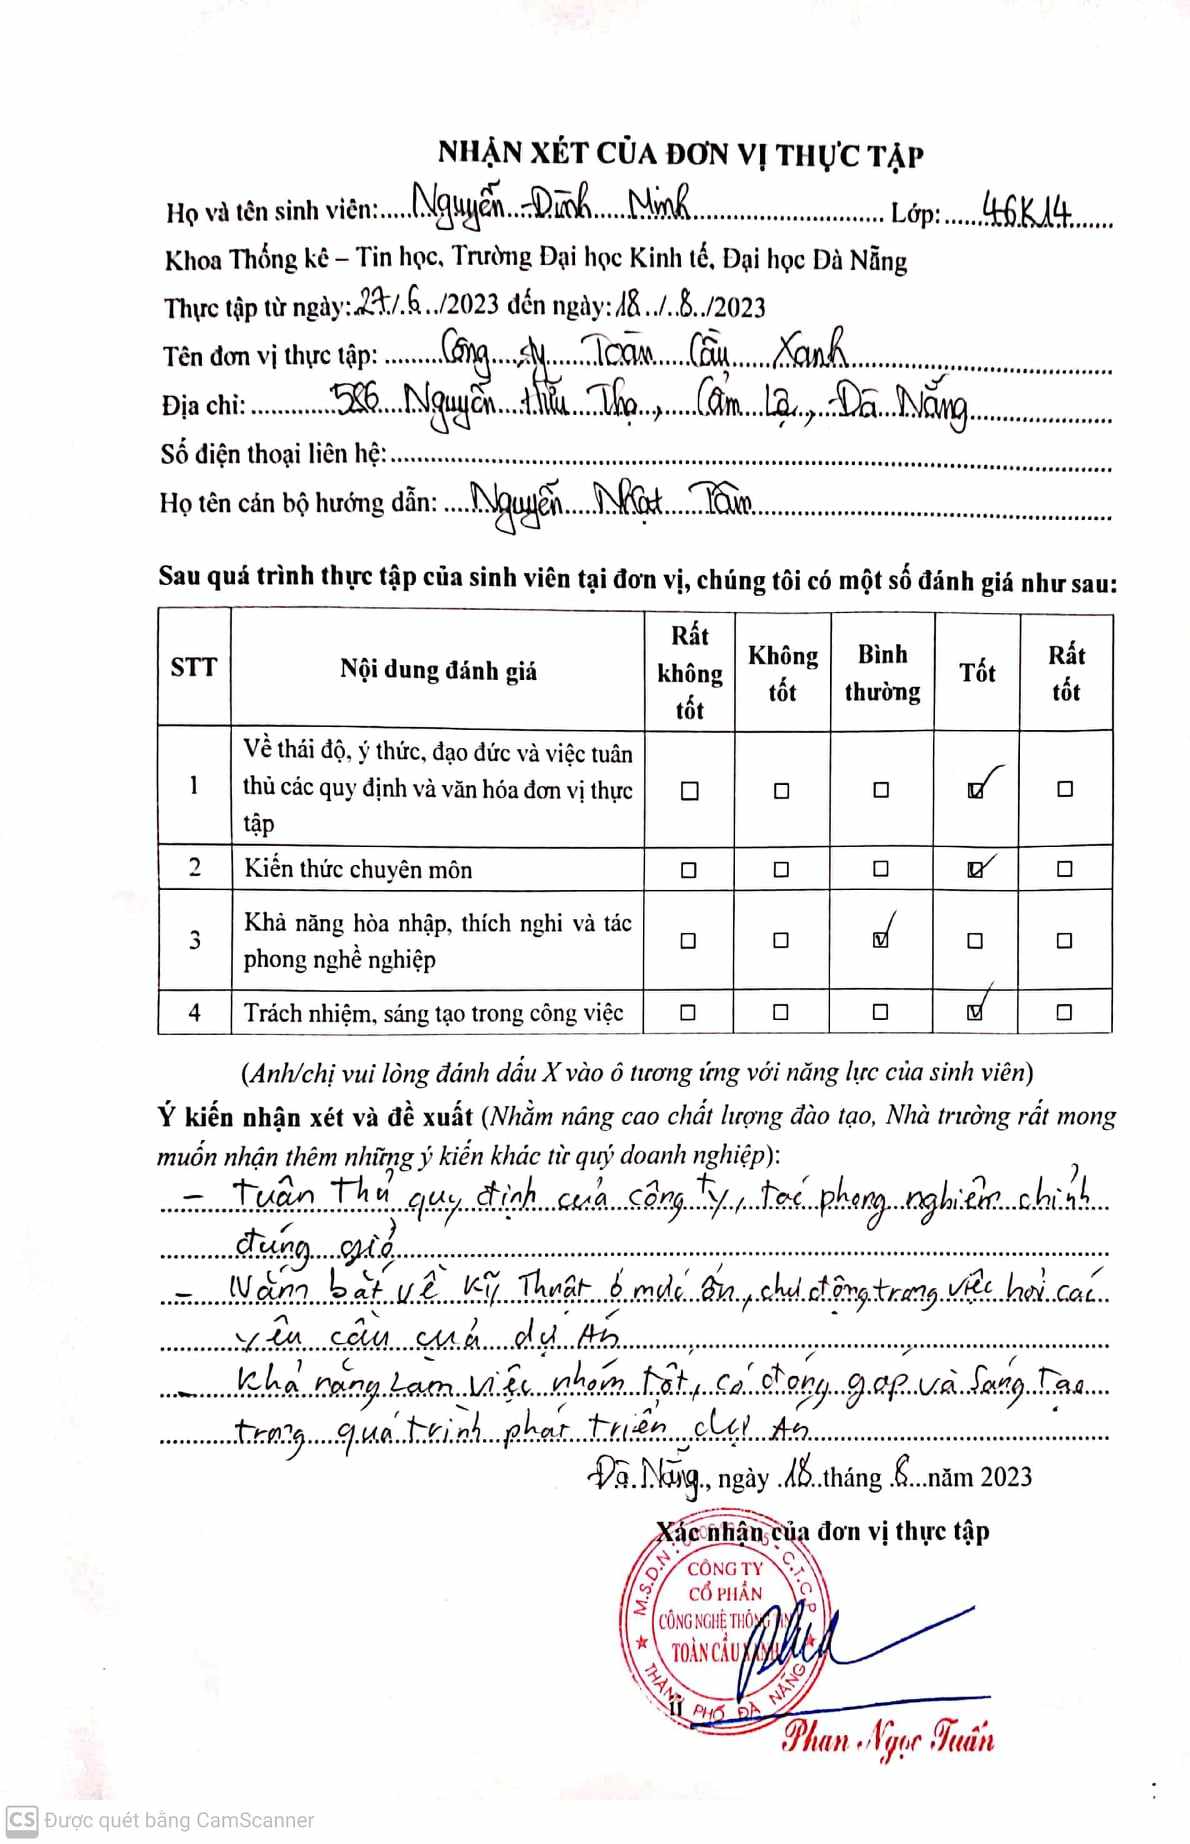 NHẬN XÉT CỦA ĐƠN VỊ THỰC TẬP
Họ và tên sinh viên: Nguyễn Đình Minh Lớp: 46K14
Khoa Thống kê – Tin học, Trường Đại học Kinh tế, Đại học Đà Nẵng
Thực tập từ ngày: 27/6/2023 đến ngày: 18/8/2023
Tên đơn vị thực tập: Công ty Toàn Cầu Xanh
Địa chỉ: 586 Nguyễn Hữu Thọ, Cẩm Lệ, Đà Nẵng
Số điện thoại liên hệ:
Họ tên cán bộ hướng dẫn: Nguyễn Nhật Tâm
Sau quá trình thực tập của sinh viên tại đơn vị, chúng tôi có một số đánh giá như sau:
STT Nội dung đánh giá Rất không tốt Không tốt Bình thường Tốt Rất tốt
1 Về thái độ, ý thức, đạo đức và việc tuân
thủ các quy định và văn hóa đơn vị thực ☐ ☐ ☐ ☑ ☐
tập
2 Kiến thức chuyên môn ☐ ☐ ☐ ☑ ☐
3 Khả năng hòa nhập, thích nghi và tác
phong nghề nghiệp ☐ ☐ ☑ ☐ ☐
4 Trách nhiệm, sáng tạo trong công việc ☐ ☐ ☐ ☑ ☐
(Anh/chị vui lòng đánh dấu X vào ô tương ứng với năng lực của sinh viên)
Ý kiến nhận xét và đề xuất (Nhằm nâng cao chất lượng đào tạo, Nhà trường rất mong
muốn nhận thêm những ý kiến khác từ quý doanh nghiệp):
- Tuân Thủ quy định của công ty, tác phong nghiêm chỉnh
đúng giờ
- Nắm bắt về Kỹ Thuật ở mức ổn, chủ động trong việc hỏi các
yêu cầu của dự Án
- Khả năng Làm việc nhóm tốt, có đóng góp và Sáng Tạo
trong quá trình phát triển dự Án
Đà Nẵng, ngày 18 tháng 8 năm 2023
Xác nhận của đơn vị thực tập
M.S.D.N: - C.T.C.P
CÔNG TY
CỔ PHẦN
CÔNG NGHỆ THÔNG TIN
TOÀN CẦU XANH
THÀNH PHỐ ĐÀ NẴNG
II
Phan Ngọc Tuấn
CS Được quét bằng CamScanner